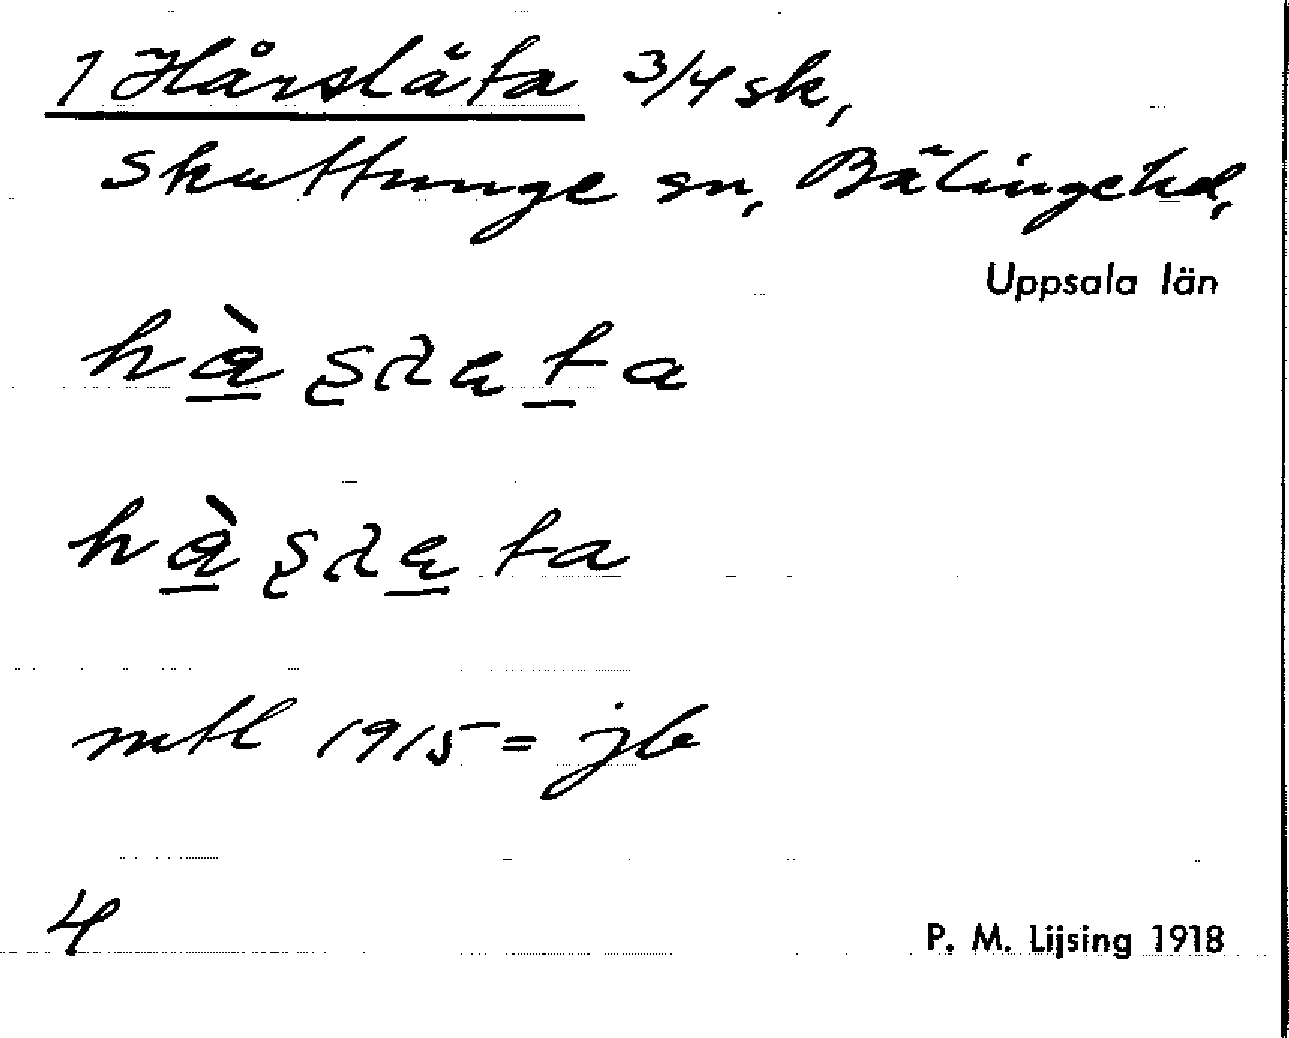 1 Hårsläta 3/4 sk,
Skuttunge sn, Bälingehd,
Uppsala län
hàsɽęta
hàsɽęta
mtl 1915 = jb
4
P. M. Lijsing 1918